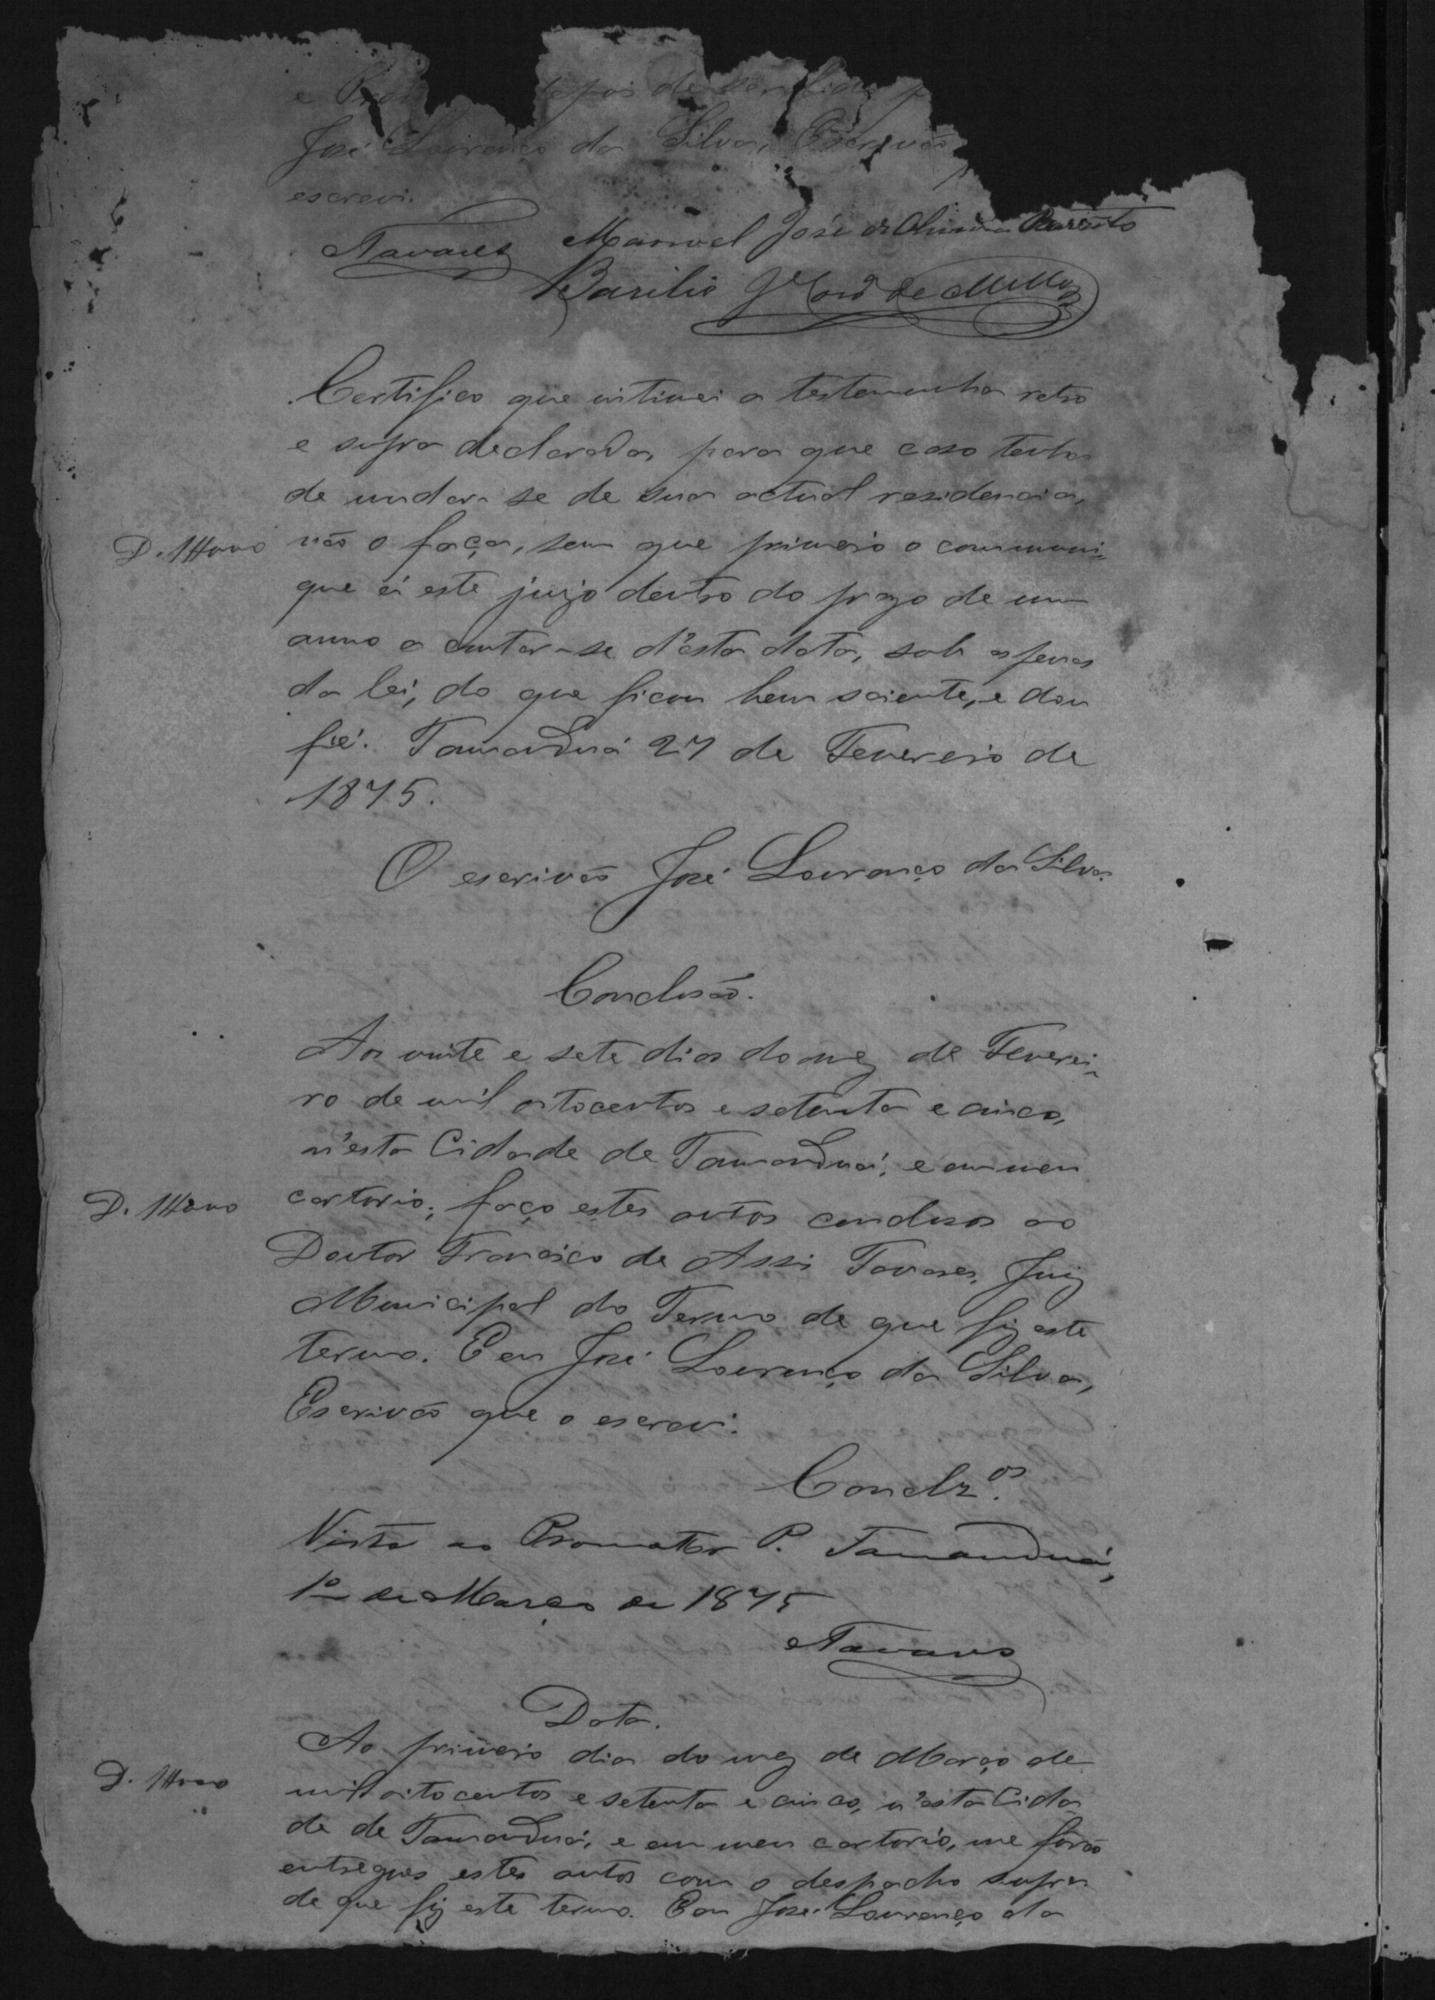 e depois de ser lido
José Lourenço da Silva, Escrivão
escrevi.
Tavares Manoel José de Oliveira Barreto
Basilio de Mello
Certifico que intimei a testemunha retro
e supra declarada, para que caso tenha
de mudar-se de sua actual residencia,
não o faça, sem que primeiro o communi-
que á este juizo dentro do prazo de um
anno a contar-se d'esta data, sob as penas
da lei; do que ficou bem sciente, e dou
fé. Tamanduá 27 de Fevereiro de
1875.
O escrivão José Lourenço da Silva.
Conclusão.
Aos vinte e sete dias do mez de Feverei-
ro de mil oitocentos e setenta e cinco,
n'esta Cidade de Tamanduá, e em meu
cartorio, faço estes autos conclusos ao
Doutor Francisco de Assi Tavares, Juiz
Municipal do Termo de que fiz este
termo. Eu José Lourenço da Silva,
Escrivão que o escrevi.
Conclz.os
Vista ao Promotor P. Tamanduá,
1º de Março de 1875
Tavares
Data.
Ao primeiro dia do mez de Março de
mil oitocentos e setenta e cinco, n'esta Cida
de de Tamanduá, e em meu cartorio, me forão
entregues estes autos com o despacho supra
de que fiz este termo. Eu José Lourenço da